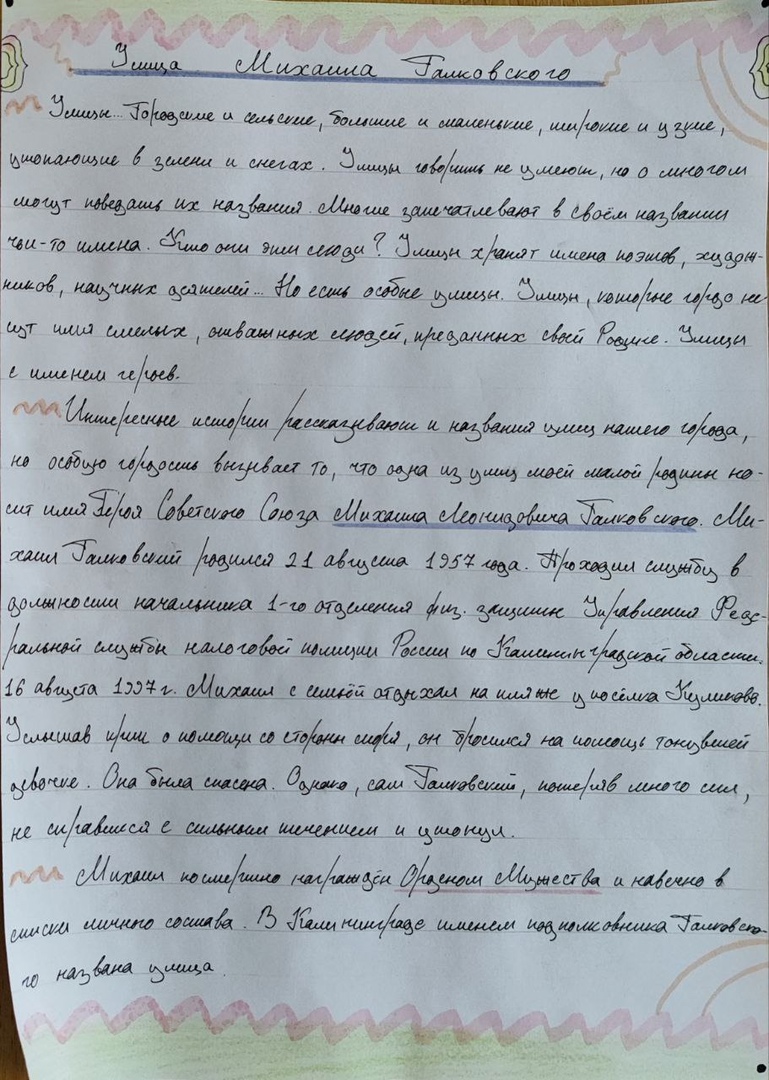 Улица Михаила Галковского
Улицы... Городские и сельские, большие и маленькие, широкие и узкие,
утопающие в зелени и снегах. Улицы говорить не умеют, но о многом
могут поведать их названия. Многие запечатлевают в своём названии
чьи-то имена. Кто они эти люди? Улицы хранят имена поэтов, худож-
ников, научных деятелей... Но есть особые улицы. Улицы, которые гордо не-
сут имя смелых, отважных людей, преданных своей Родине. Улицы
с именем героев.
Интересные истории рассказывают и названия улиц нашего города,
но особую гордость вызывает то, что одна из улиц моей малой родины но-
сит имя Героя Советского Союза Михаила Леонидовича Галковского. Ми-
хаил Галковский родился 21 августа 1957 года. Проходил службу в
должности начальника 1-го отделения физ. защиты Управления Феде-
ральной службы налоговой полиции России по Калининградской области.
16 августа 1997 г. Михаил с семьёй отдыхал на пляже у посёлка Куликово.
Услышав крик о помощи со стороны моря, он бросился на помощь тонувшей
девочке. Она была спасена. Однако, сам Галковский, потеряв много сил,
не справился с сильным течением и утонул.
Михаил посмертно награждён Орденом Мужества и навечно в
списки личного состава. В Калининграде именем подполковника Галковско-
го названа улица.